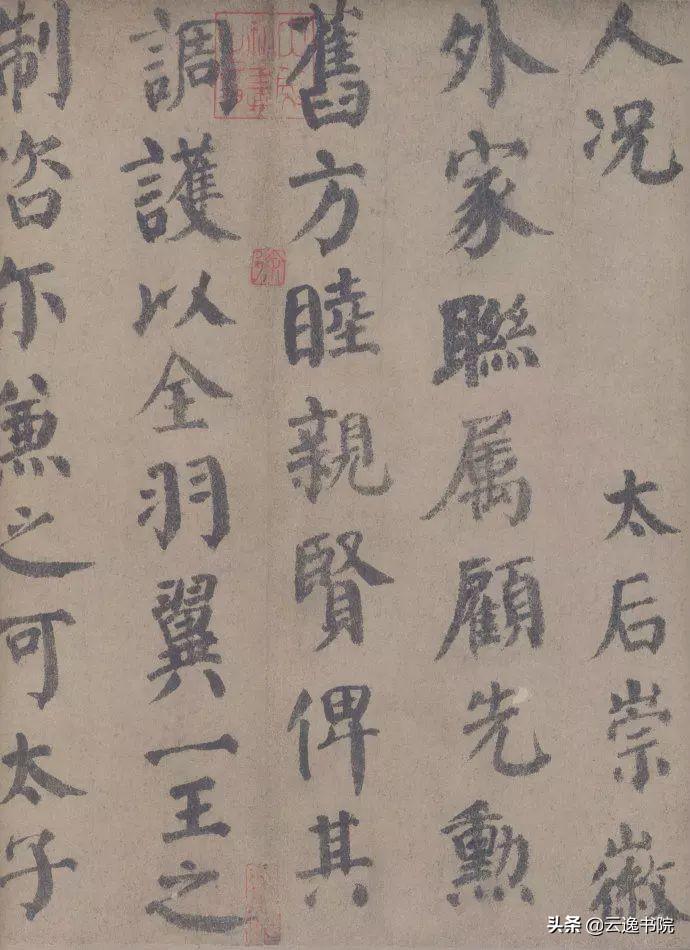 人况太后崇徽
外家聯属顧先勲
舊方睦親賢俾其
調護以全羽翼一王之
制咨尔兼之可太子
头条 @云逸书院